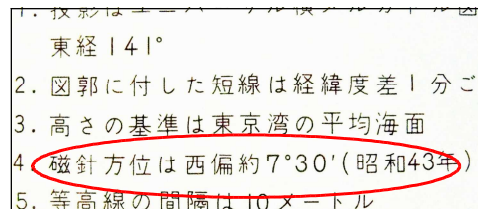 1. 投影はユニバーサル横メルカトル図
東経141°
2. 図郭に付した短線は経緯度差1分ご
3. 高さの基準は東京湾の平均海面
4. 磁針方位は西偏約7°30′(昭和43年)
5. 等高線の間隔は10メートル